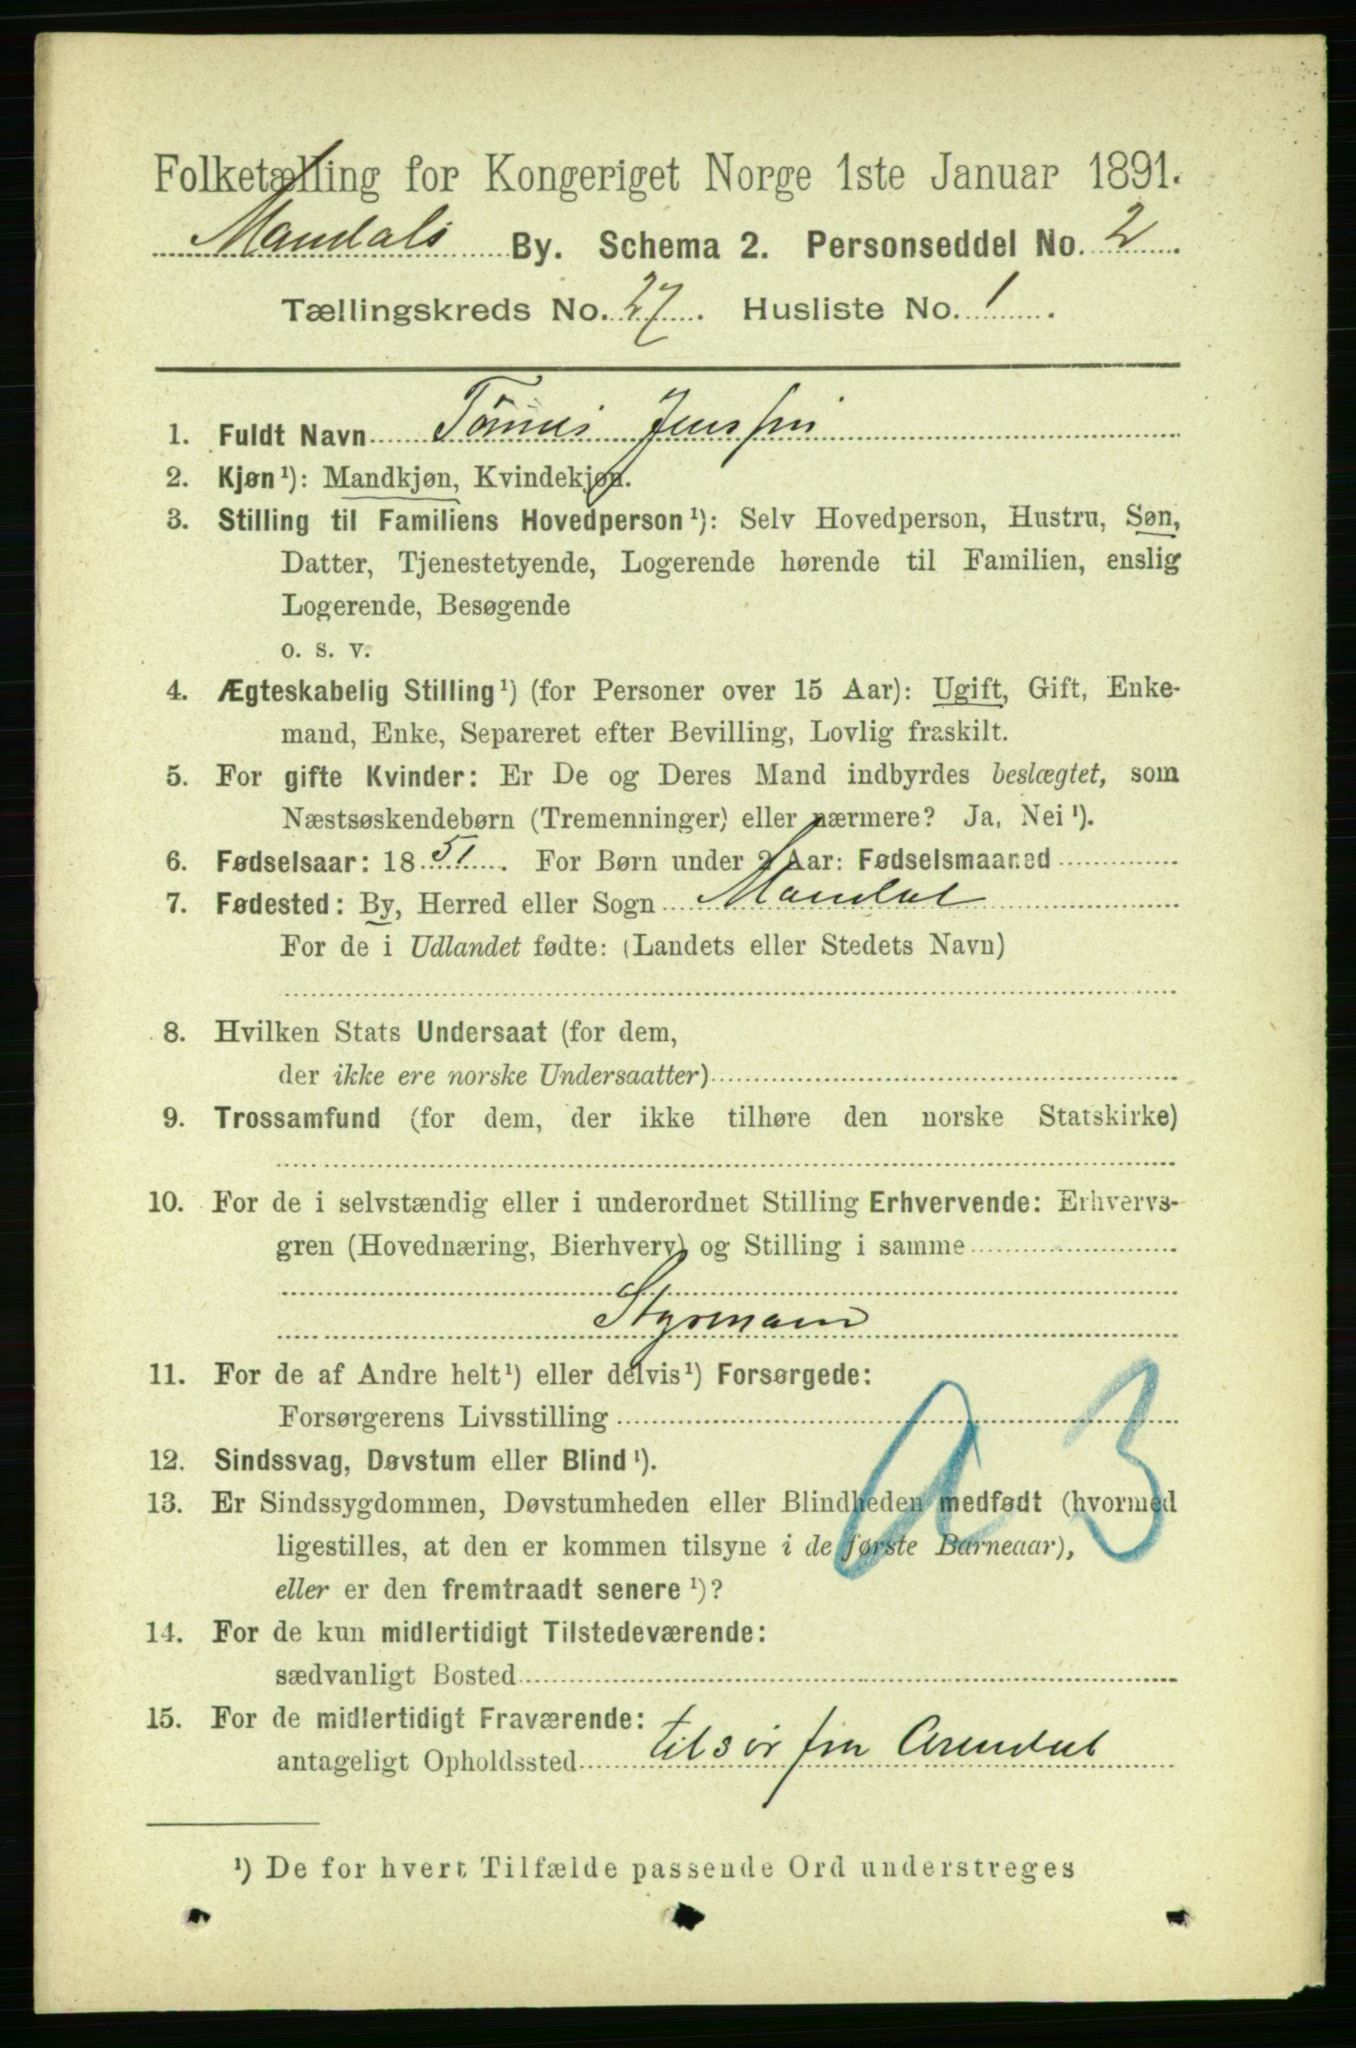 Folketælling for Kongeriget Norge 1ste Januar 1891.
Mandals By. Schema 2. Personseddel No. 2.
Tællingskreds No. 27. Husliste No. 1.
1. Fuldt Navn Tønnes Jenssen
2. Kjøn¹): Mandkjøn, Kvindekjøn.
3. Stilling til Familiens Hovedperson¹): Selv Hovedperson, Hustru, Søn,
Datter, Tjenestetyende, Logerende hørende til Familien, enslig
Logerende, Besøgende
o. s. v.
4. Ægteskabelig Stilling¹) (for Personer over 15 Aar): Ugift, Gift, Enke-
mand, Enke, Separeret efter Bevilling, Lovlig fraskilt.
5. For gifte Kvinder: Er De og Deres Mand indbyrdes beslægtet, som
Næstsøskendebørn (Tremenninger) eller nærmere? Ja, Nei¹).
6. Fødselsaar: 1851. For Børn under 2 Aar: Fødselsmaaned
7. Fødested: By, Herred eller Sogn Mandal
For de i Udlandet fødte: (Landets eller Stedets Navn)
8. Hvilken Stats Undersaat (for dem,
der ikke ere norske Undersaatter)
9. Trossamfund (for dem, der ikke tilhøre den norske Statskirke)
10. For de i selvstændig eller i underordnet Stilling Erhvervende: Erhvervs-
gren (Hovednæring, Bierhverv) og Stilling i samme
Styrmann
11. For de af Andre helt¹) eller delvis¹) Forsørgede:
Forsørgerens Livsstilling
a 3
12. Sindssvag, Døvstum eller Blind¹).
13. Er Sindssygdommen, Døvstumheden eller Blindheden medfødt (hvormed
ligestilles, at den er kommen tilsyne i de første Barneaar),
eller er den fremtraadt senere¹)?
14. For de kun midlertidigt Tilstedeværende:
sædvanligt Bosted
15. For de midlertidigt Fraværende:
antageligt Opholdssted tilsør fra Arendal
¹) De for hvert Tilfælde passende Ord understreges